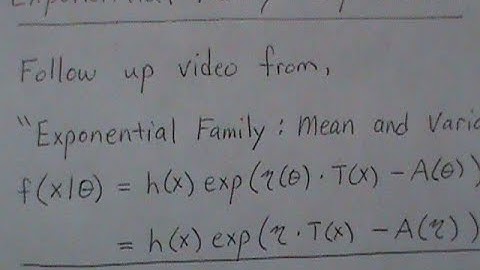 Follow up video from,
"Exponential Family: Mean and
f(x|θ) = h(x) exp(η(θ) · T(x) − A(θ))
= h(x) exp(η · T(x) − A(η))